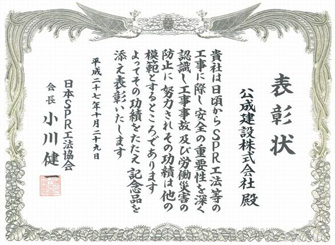 表彰状
公成建設株式会社 殿
貴社は日頃からSPR工法等の
工事に際し安全の重要性を深く
認識し工事事故及び労働災害の
防止に努力されその功績は他の
模範とするところであります
よってその功績をたたえ記念品を
添え表彰いたします
平成二十七年十月二十九日
日本SPR工法協会
会長 小川健一